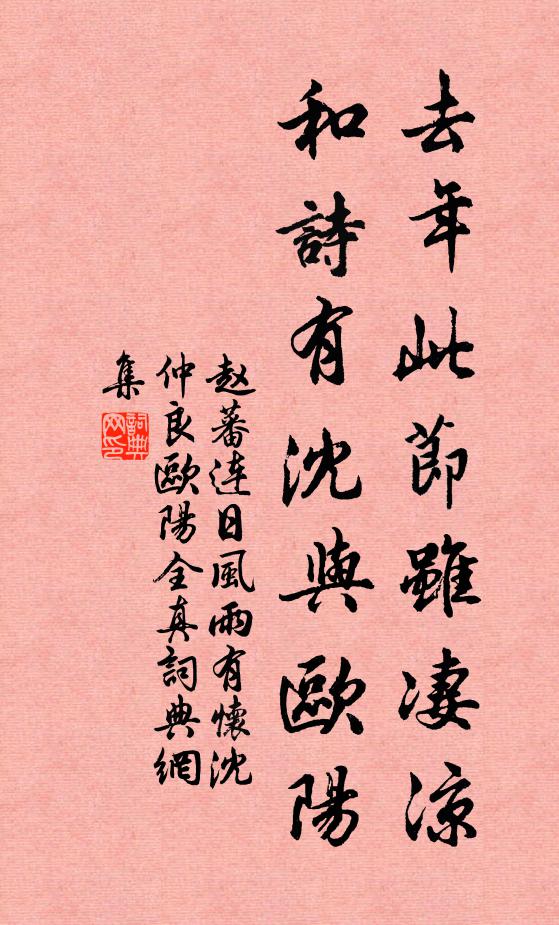 去年此節雖凄涼
和詩有沈與歐陽
赵蕃连日風雨有懷沈
仲良歐陽全真詞典網
集
詞典
网印